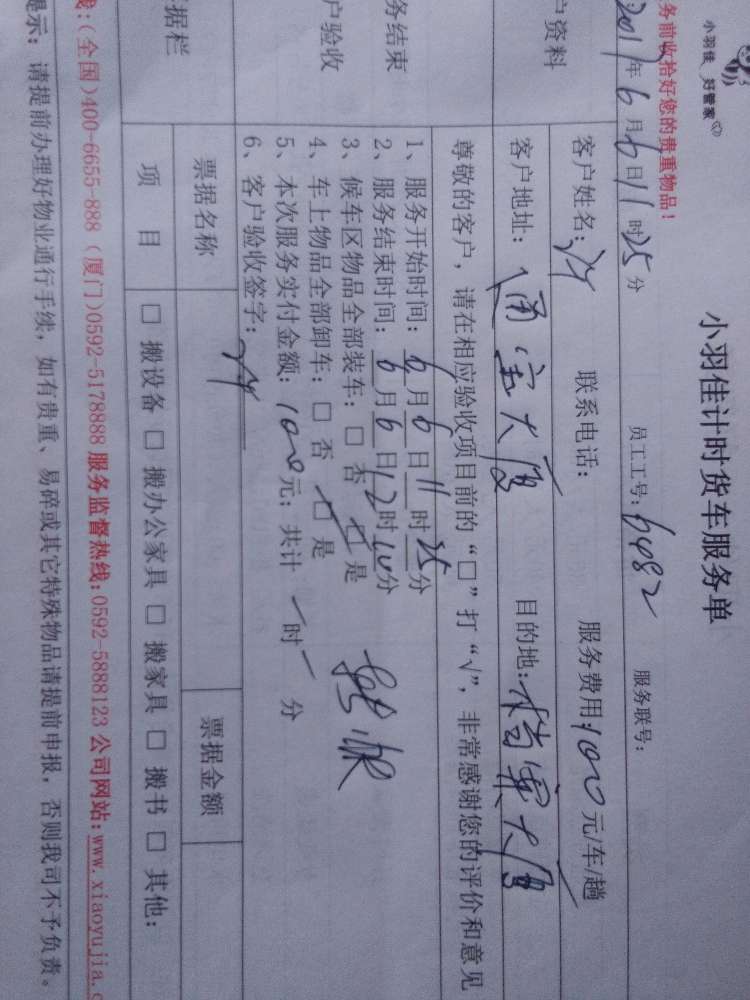 小羽佳 好管家
小羽佳计时货车服务单
务前收拾好您的贵重物品！
2017年6月6日11时25分 员工工号：6482 服务联号：
户资料
客户姓名： 联系电话： 服务费用：100元/车/趟
客户地址：通宝大厦 目的地： 大厦
务结束
户验收
尊敬的客户，请在相应验收项目前的“□”打“√”，非常感谢您的评价和意见
1、服务开始时间：6月6日11时25分
2、服务结束时间：6月6日12时10分
3、候车区物品全部装车：□ 否 □ 是
4、车上物品全部卸车：□ 否 □ 是
5、本次服务实付金额：100元；共计 一 时 一 分
6、客户验收签字：
据栏
票据名称 票据金额
项 目 □ 搬设备 □ 搬办公家具 □ 搬家具 □ 搬书 □ 其他：
线：(全国)400-6655-888 (厦门)0592-5178888 服务监督热线：0592-5888123 公司网站：www.xiaoyujia.c
提示：请提前办理好物业通行手续，如有贵重、易碎或其它特殊物品请提前申报，否则我司不予负责。